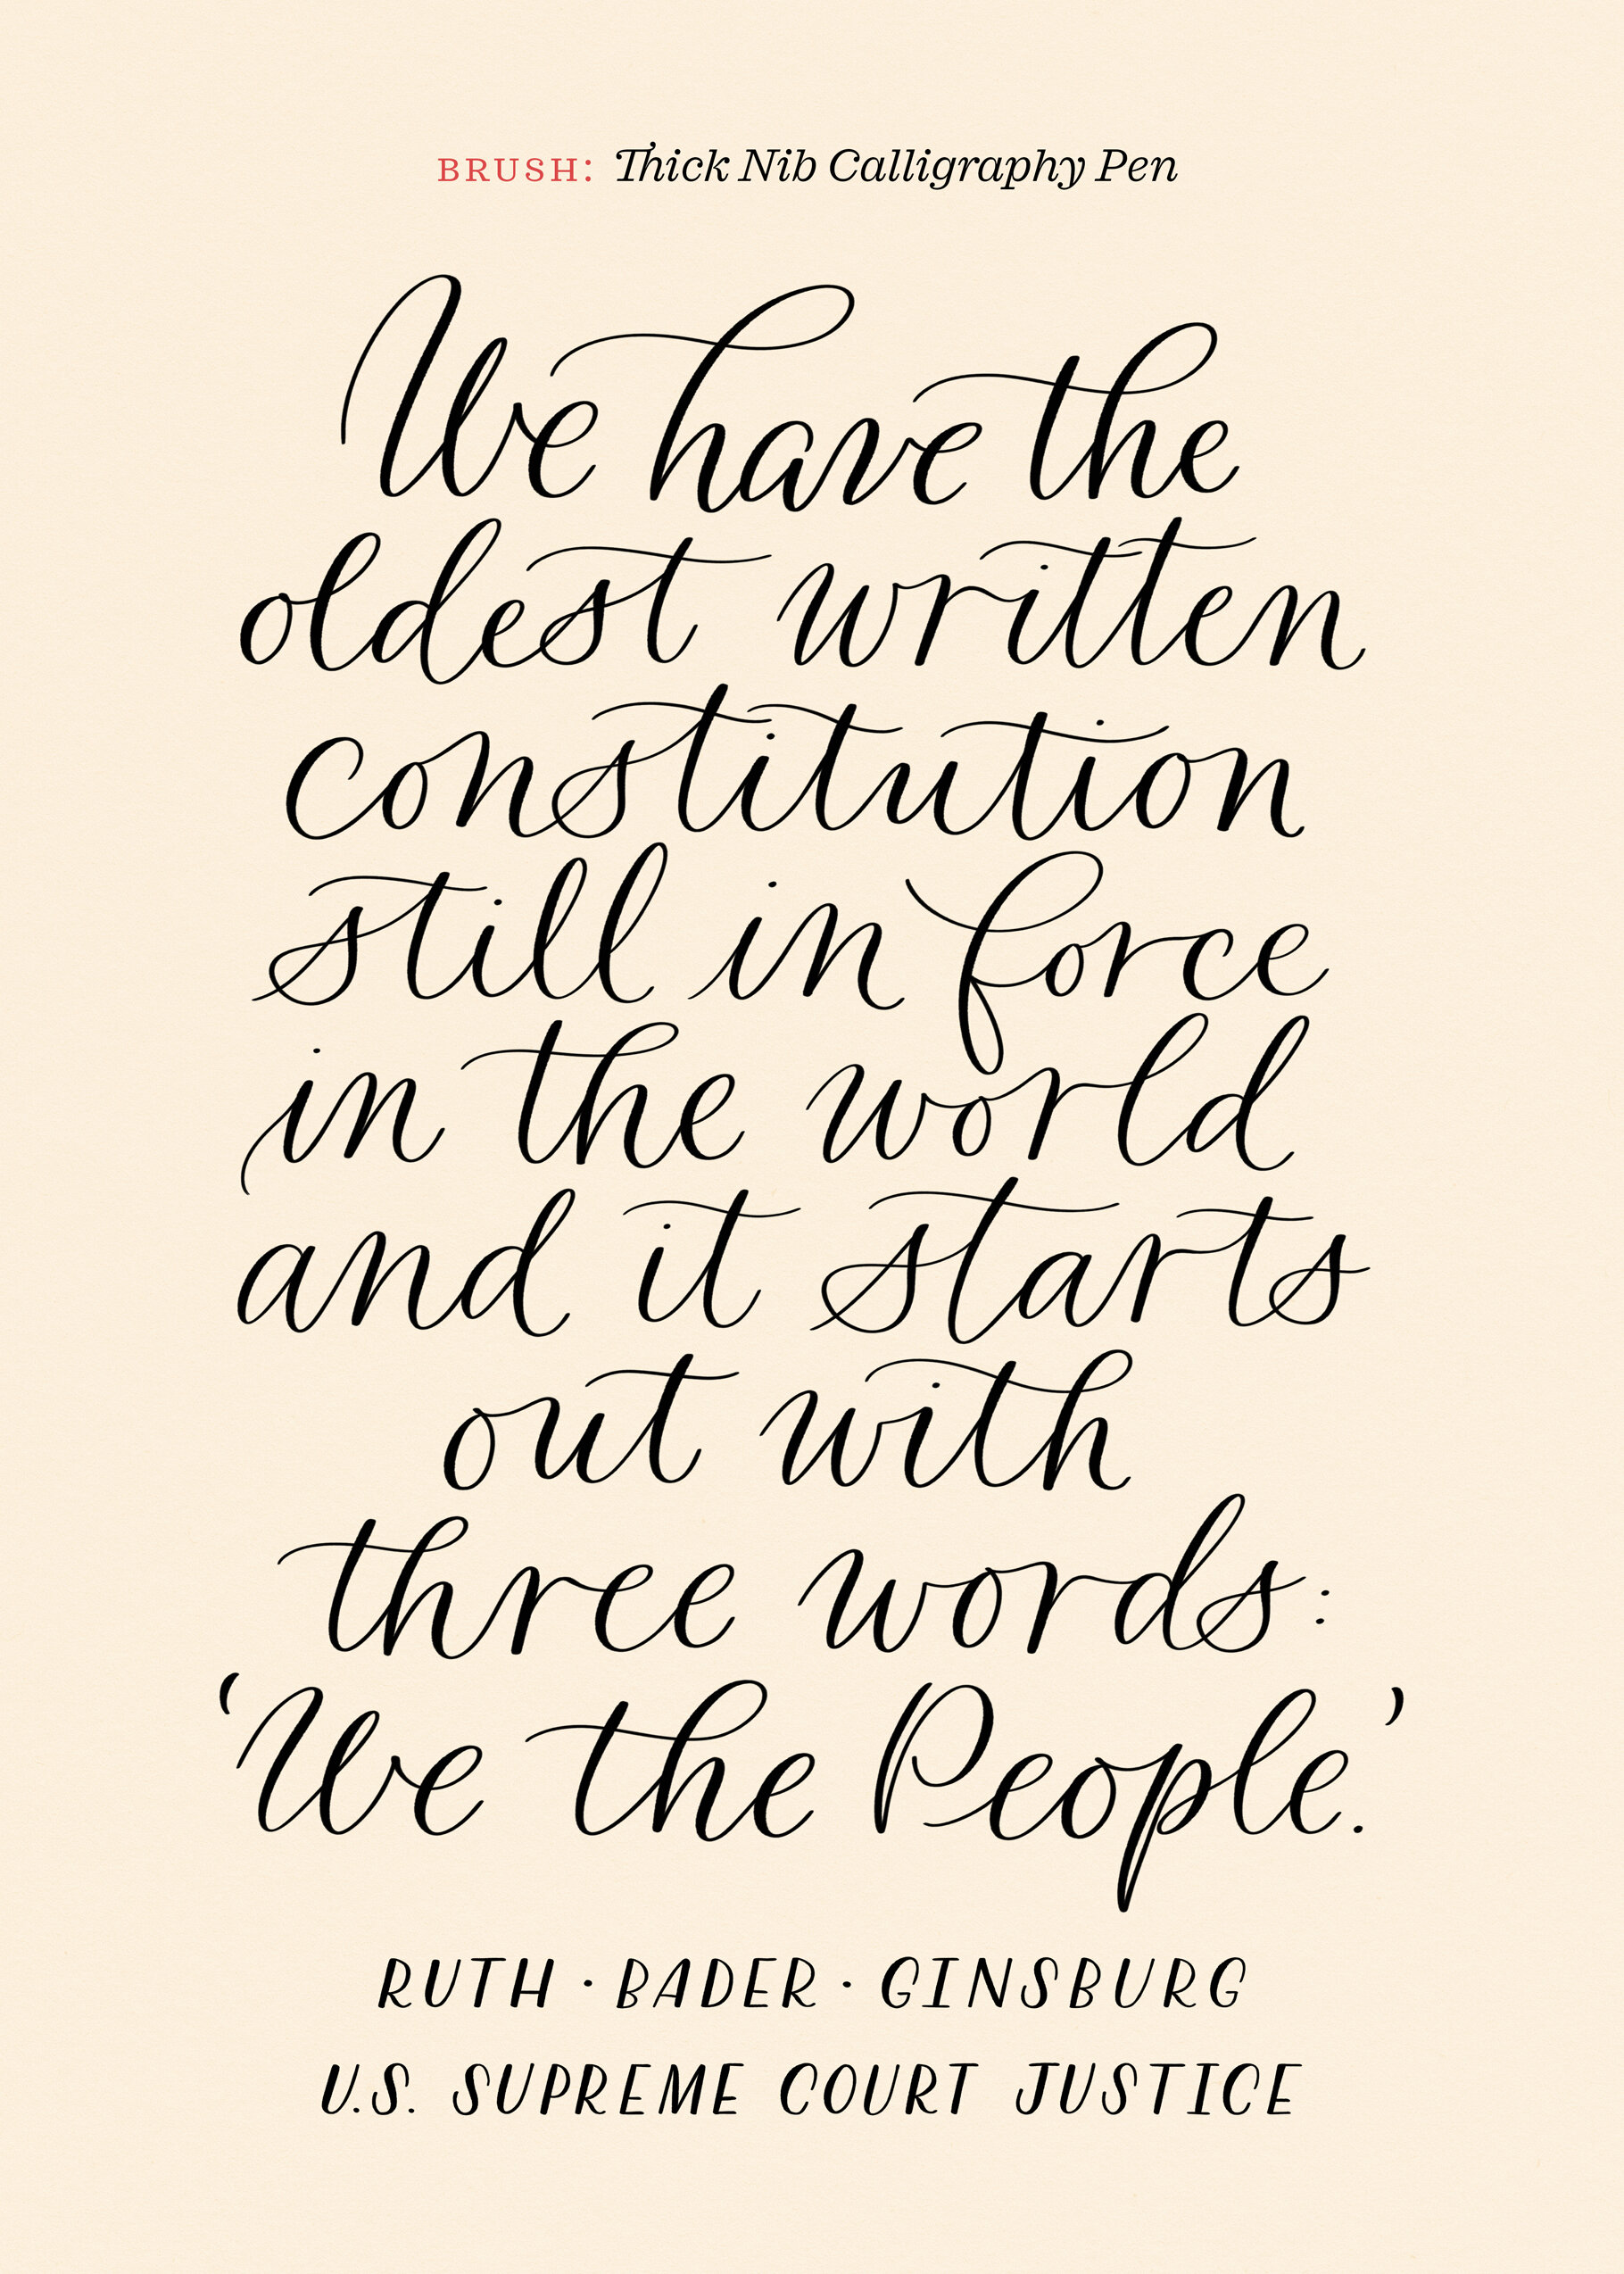 BRUSH: Thick Nib Calligraphy Pen
We have the
oldest written
constitution
still in force
in the world
and it starts
out with
three words:
‘We the People.’
RUTH · BADER · GINSBURG
U.S. SUPREME COURT JUSTICE